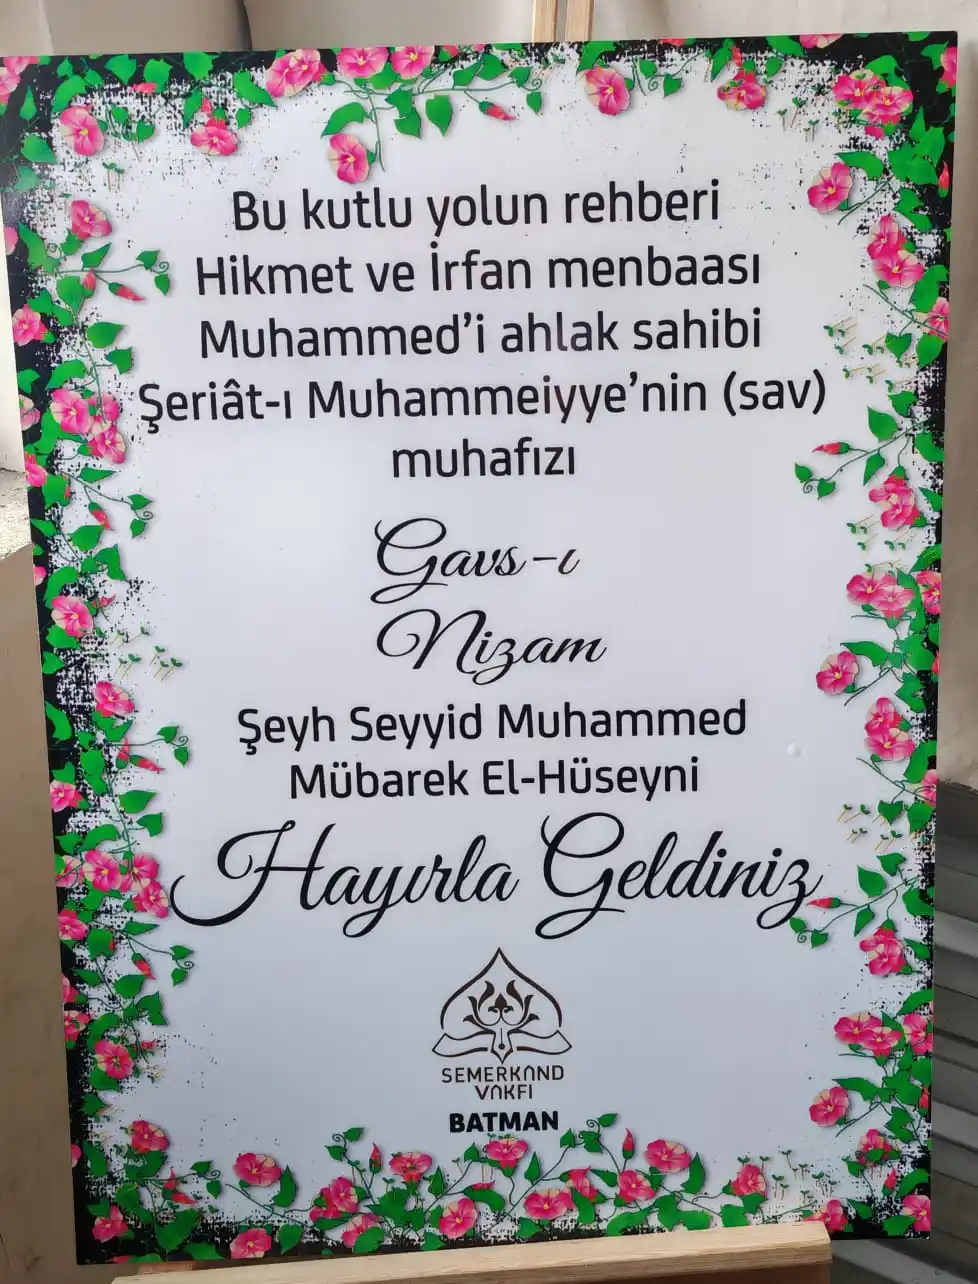 Bu kutlu yolun rehberi
Hikmet ve İrfan menbaası
Muhammed’i ahlak sahibi
Şeriât-ı Muhammeiyye’nin (sav)
muhafızı
Gavs-ı
Nizam
Şeyh Seyyid Muhammed
Mübarek El-Hüseyni
Hayırla Geldiniz
SEMERKAND
VAKFI
BATMAN